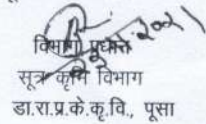 विभागीय प्रधान
सूत्रकृमि विभाग
डा.रा.प्र.के.कृ.वि., पूसा